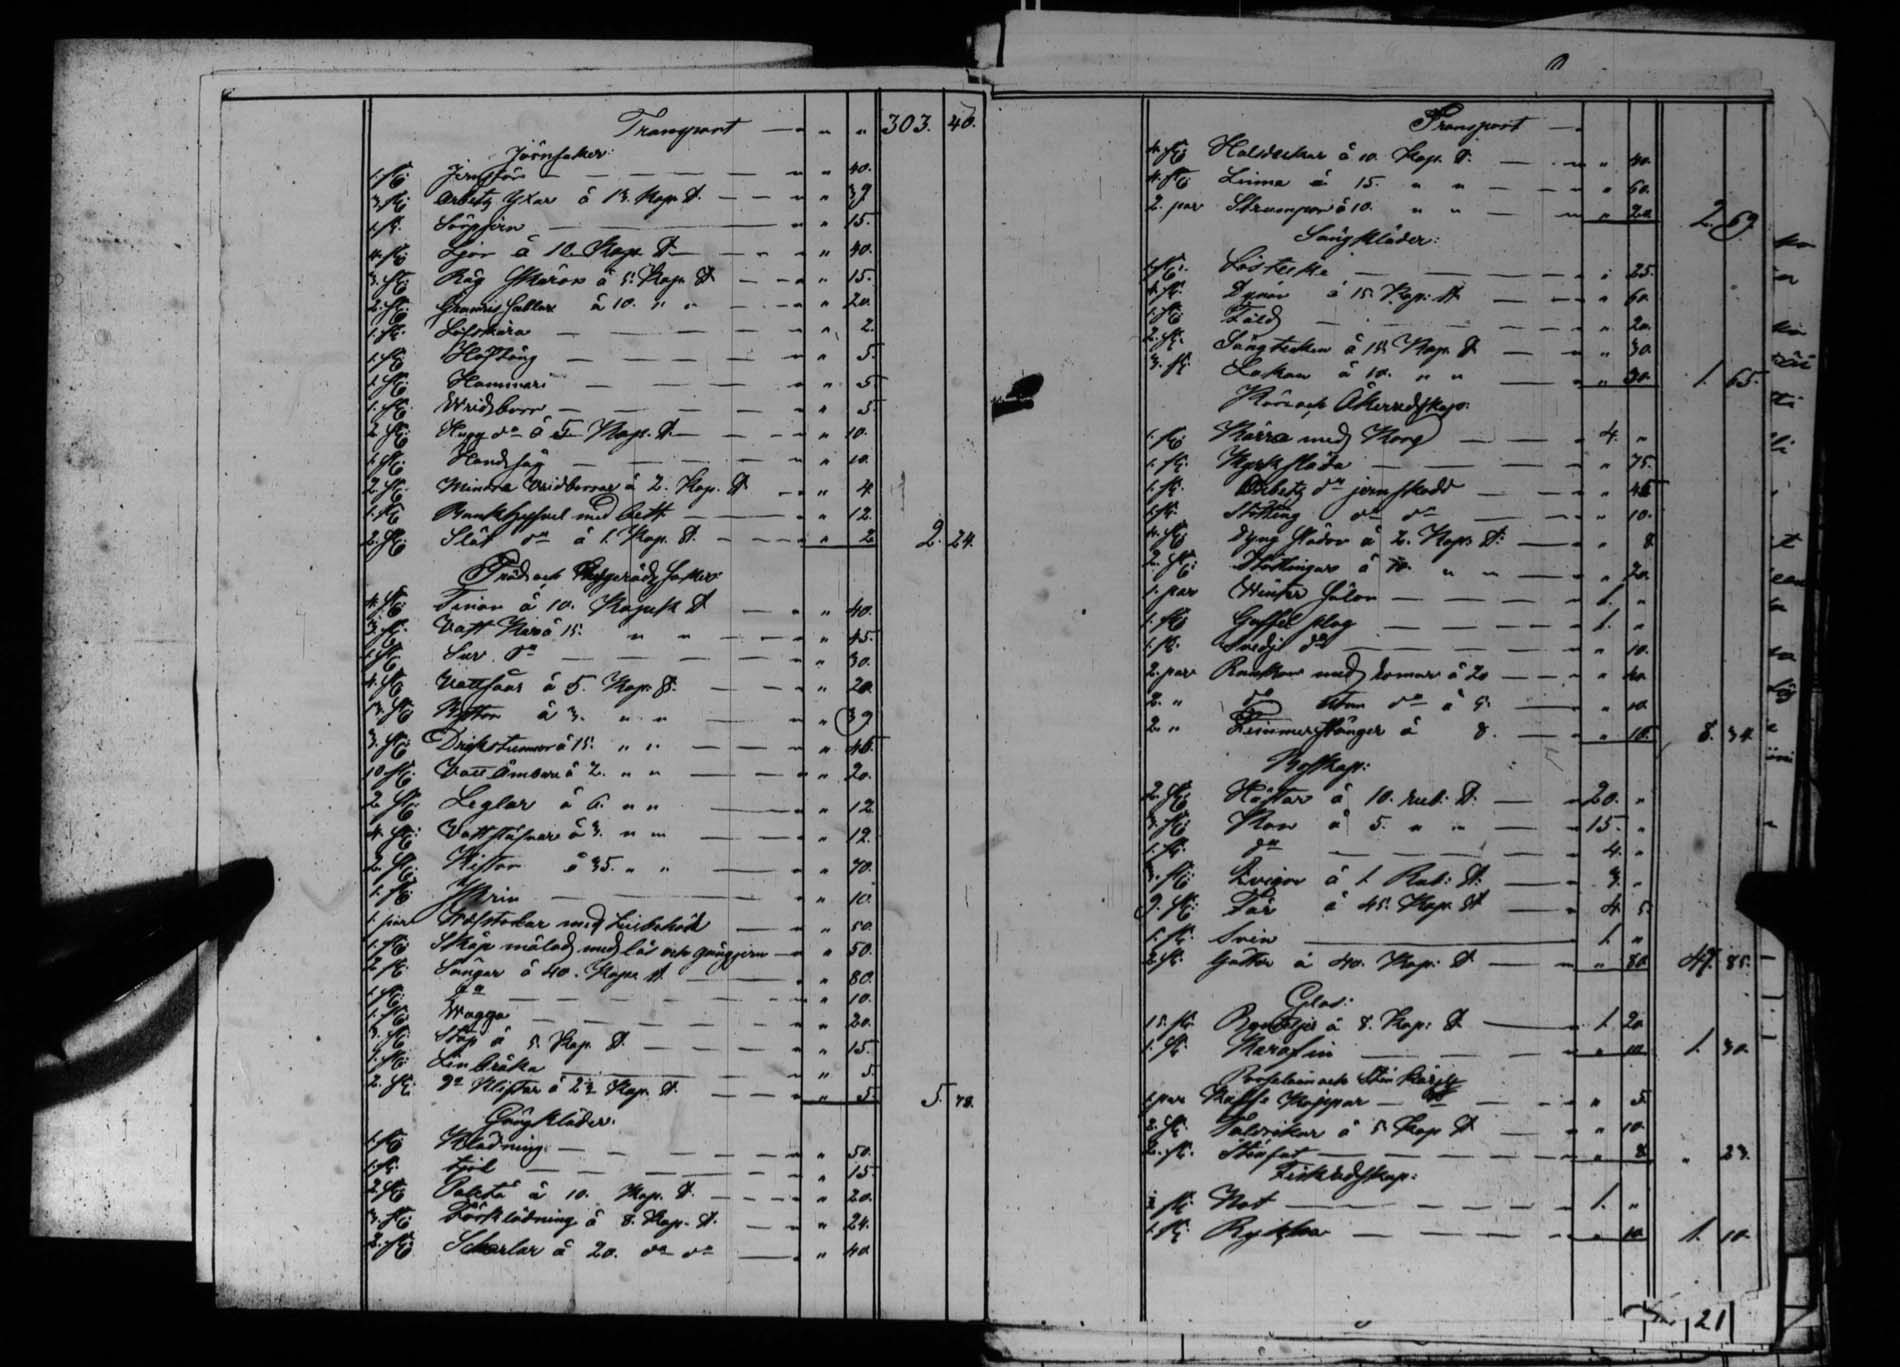 Transport — „ „ 303. 40.
Järnsaker:
1. st: — „ 40.
3. st: Arbets Yxor à 13. Kop. St — „ 39
1. st: — „ 15.
4. st: Ljor à 10 Kop. St — „ 40.
3. st: Råg Skäror à 5. Kop. St — „ 15.
2. st: à 10. „ „ „ 20.
1. st: Löfskära — „ 2.
1. st: Hoftång — „ 5.
1. st: Hammare — „ 5.
1. st: Wridborr — „ 5.
2. st: Hugg do à 5 Kop. St — „ 10.
1. st: Handsåg — „ 10.
2. st: Mindre Vridborrar à 2. Kop. St — „ 4.
1. st: Bankhyfvel med bett — „ 12.
2. st: Slät do à 1. Kop. St — „ 2 2. 24.
Träd och saker
4. st: Tinor à 10. Kopek St — „ 40.
3. st: Vatt Kar à 15. „ „ — „ 45.
1. st: Sur do — „ 30.
4. st: Vattsåar à 5. Kop. St. — „ 20.
13. st: Byttor à 3. „ „ — „ 39
3. st: Drikstunnor à 15. „ „ — „ 45.
10. st: Vatt Ämbare à 2. „ „ — „ 20.
2. st: Leglar à 6. „ „ — „ 12
4. st: à 3. „ „ — „ 12.
2. st: Kistor à 35. „ „ — „ 70.
1. st: Skrin — „ 10.
1. par Wäfstolar med — „ 50.
1. st: Skåp målad med lås och gångjern — „ 50.
2. st: Sängar à 40. Kop. St — „ 80.
1. st: do — „ 10.
1. st: Wagga — „ 20.
3. st: Stop à 5. Kop. St. — „ 15.
1. st: Linbråka — „ 5
2. st: do Klyftor à 2½ Kop. St. — „ 5. 5. 78.
Gångkläder.
1. st: Klädning — „ 50.
1. st: Kjol — „ 15.
2. st: à 10. Kop. St. — „ 20.
3. st: Förklädning à 8. Kop. St. — „ 24.
2. st: Schalar à 20. do do — „ 40.
Transport —
4. st: Halsdukar à 10. Kop. St. — „ 40.
4. st: Linna à 15. „ „ — „ 60.
2. par Strumpor à 10. „ „ — „ 20. 2. 69
Sängkläder:
1. st: — „ 25.
4. st: Dynor à 15. Kop: St — „ 60.
1. st: Fäld — „ 20.
2. st: Sängtecken à 15. Kop. St — „ 30.
3. st: Lakan à 10. „ „ — „ 30. 1. 65.
Kör och Åkerredskap.
1. st: Kärra med Korg — 4. „
1. st: Kyrksläda — „ 75.
1. st: Arbets do jernskodd — „ 45
1. st: Stötting do do — „ 10.
4. st: Dyng slädor à 2. Kop. St. — „ 8
2. st: Stöttingar à 10. „ „ — „ 20.
1. par — 1. „
1. st: Gaffel plog — 1. „
1. st: Svedje do — „ 10.
2. par Rankor med lomar à 20 — „ 40.
2. „ do utom do à 5. — „ 10.
2. „ Timmerstänger à 8. — „ 16. 8. 34.
Boskap:
2. st: Hästar à 10. rub: St. — 20. „
3. st: Kor à 5. „ „ — 15. „
1. st: do — 4. „
3. st: Kvigor à 1. Rub: St: — 3. „
9. st: Får à 45. Kop. St — 4. 5.
1. st: Svin — 1. „
2. st: Galtar à 40. Kop: St — „ 80. 47. 85.
Glas:
15. st: à 8. Kop: St — 1. 20.
1. st: Karafin — „ 10. 1. 30.
Porselain och Sten
1. par Kaffe Koppar — „ 5.
2. st: Talrikar à 5. Kop St — „ 10.
2. st: Stenfat — „ 8. „ 23.
Fiskredskap:
1. st: Not — 1. „
1. st: — „ 10. 1. 10.
21